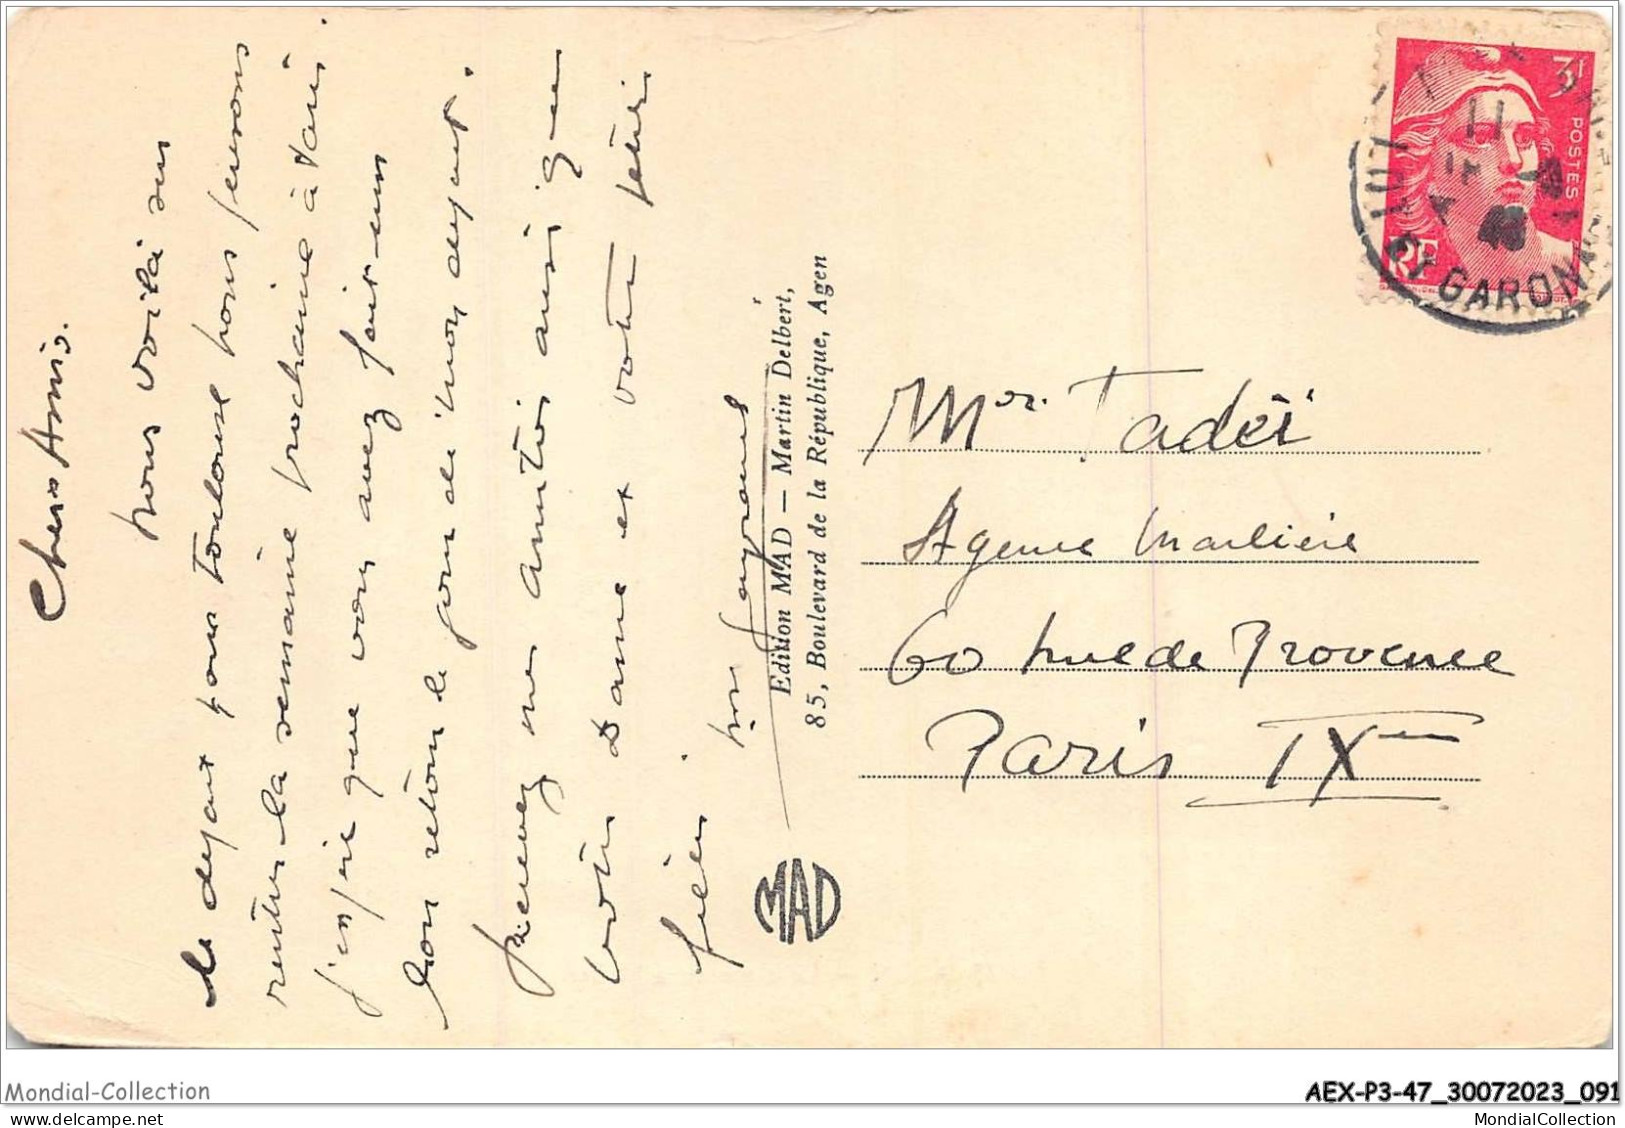 Chers Amis.
nous voilà sur
le départ pour Toulouse nous pensons
rentrer la semaine prochaine à Paris.
j'espère que vous avez fait un
bon retour le jour de mon départ.
recevez mes amitiés ainsi que
votre Dame et votre petite
fille.
Edition MAD — Martin Delbert,
85, Boulevard de la République, Agen
MAD
3f
POSTES
RF
LOT
11
48
GARONNE
Mor. Tadéi
Agence Marlière
60 rue de Provence
Paris IXem
Mondial-Collection
AEX-P3-47_30072023_091
MondialCollection